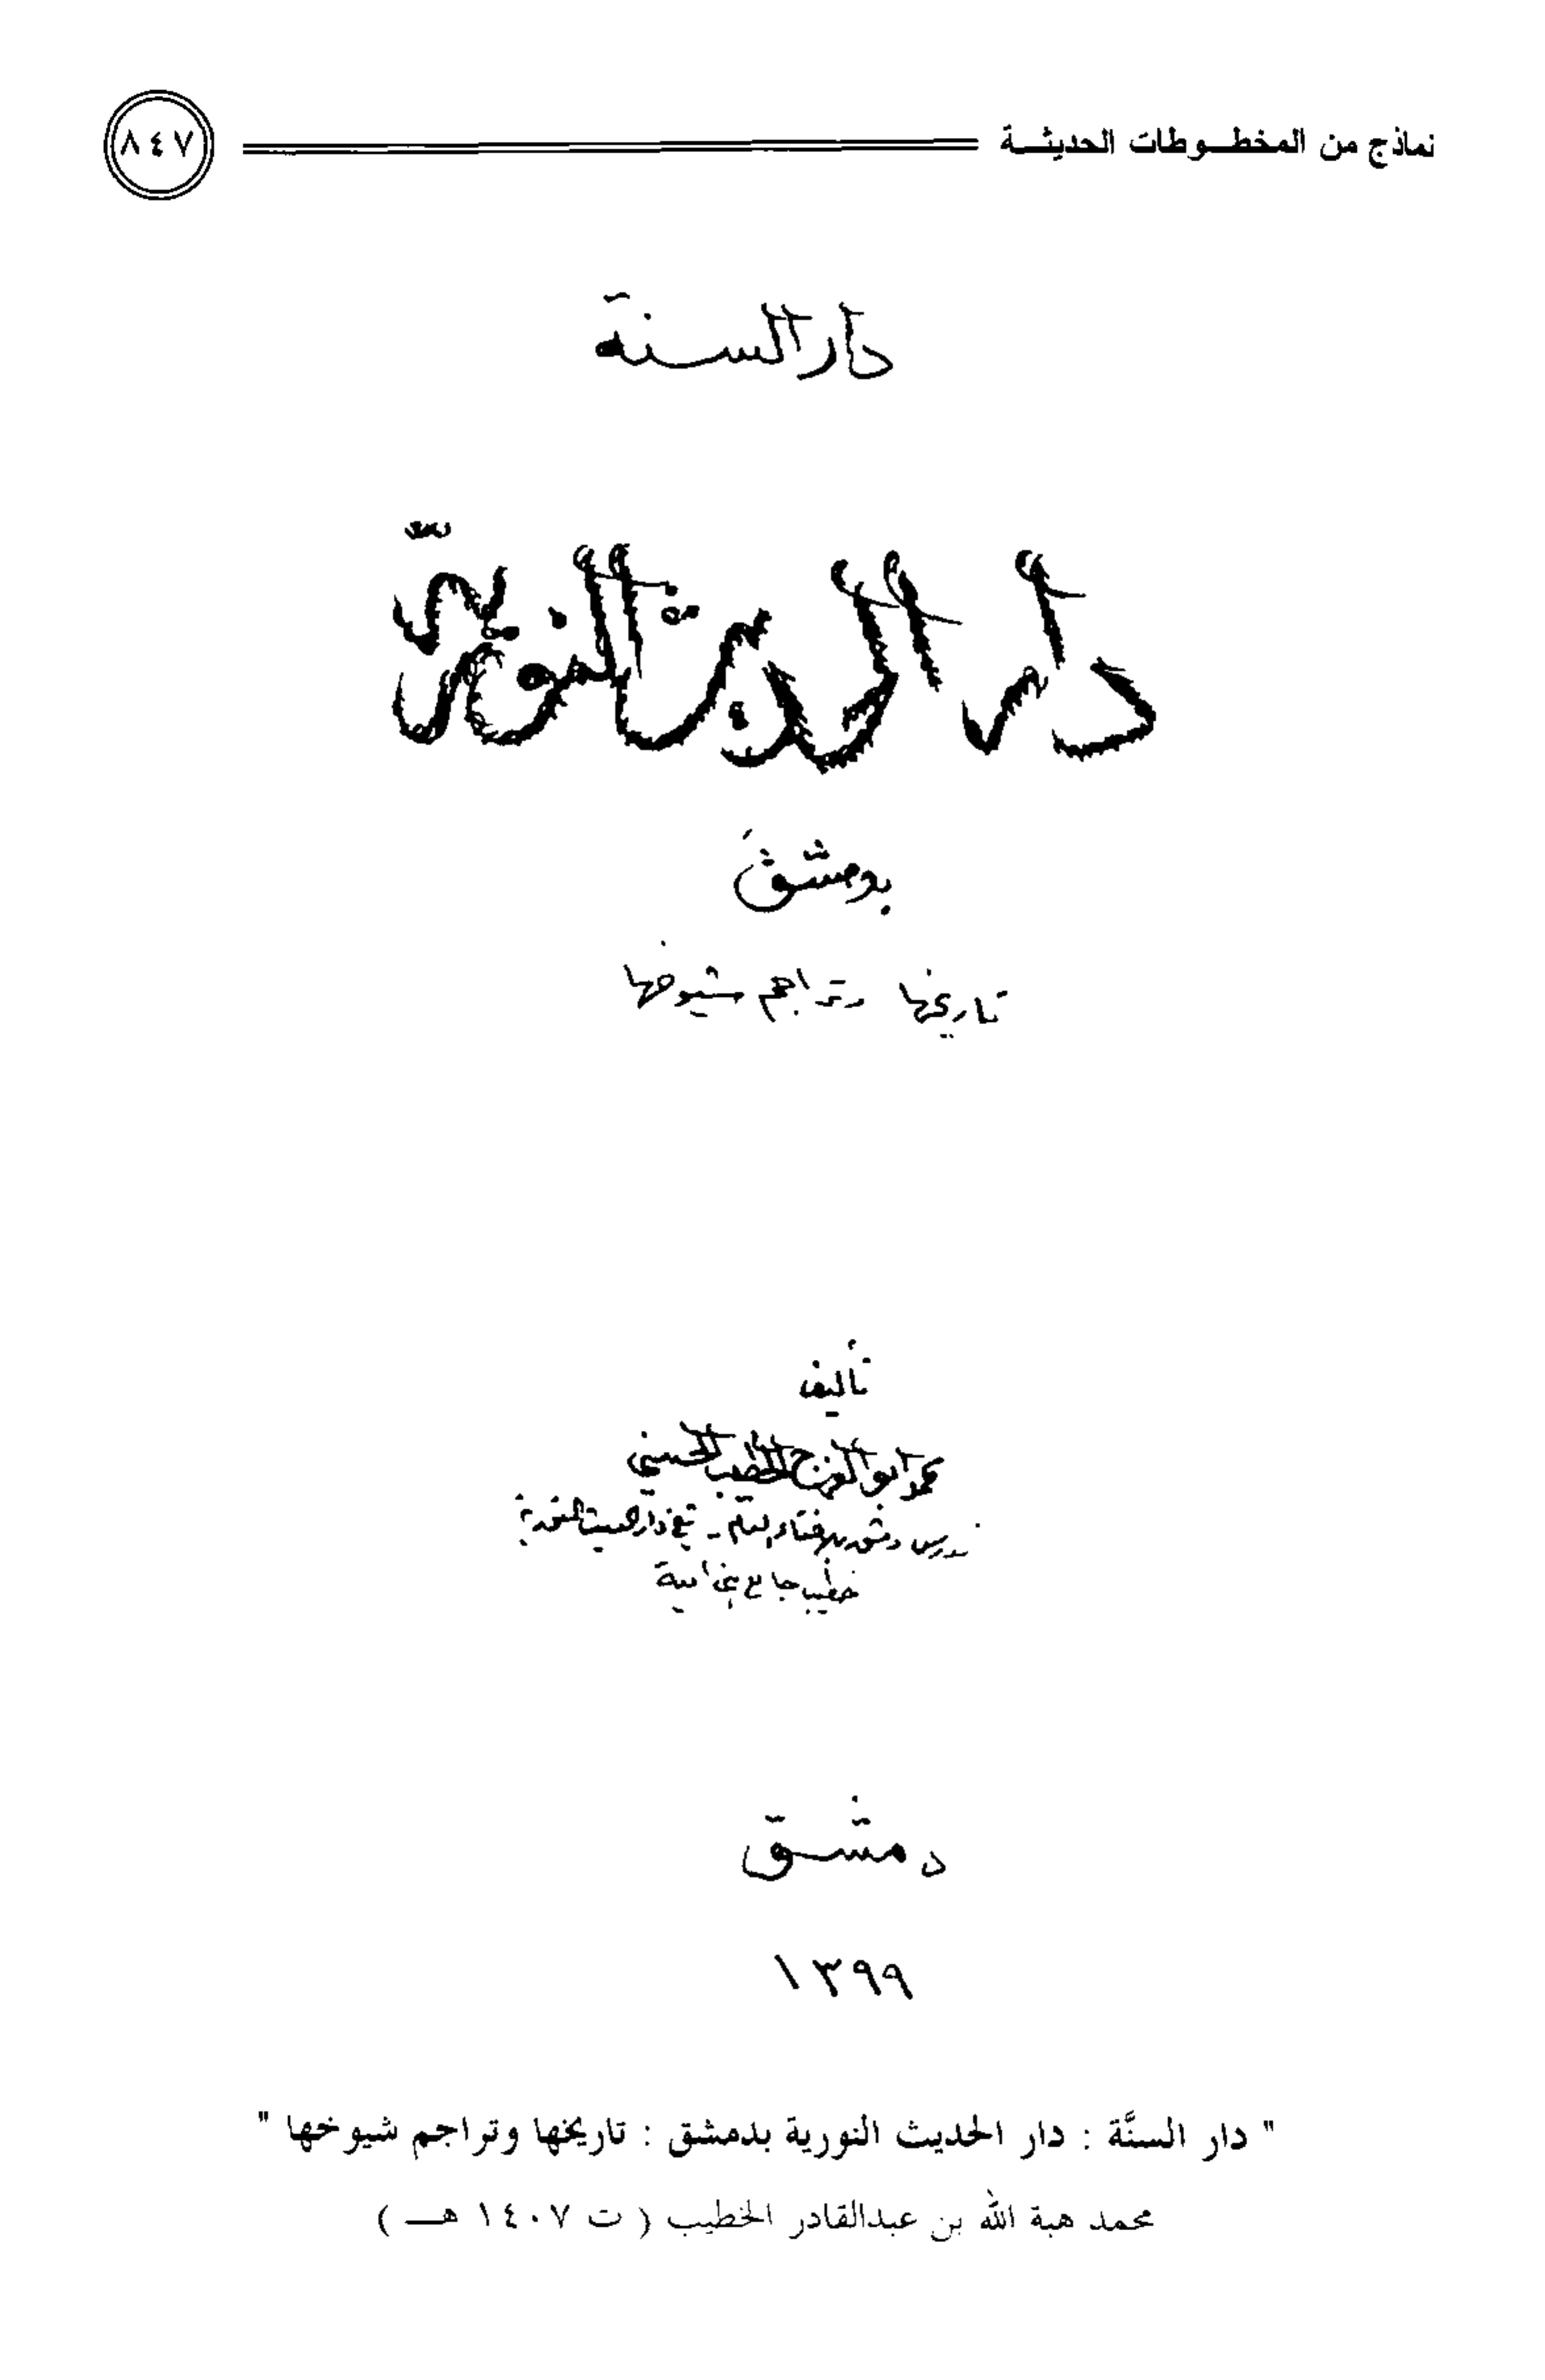 نماذج من المخطوطات الحديثة ٨٤٧
دار السنة
دار الحديث النورية
بدمشق
تاريخها وتراجم شيوخها
تأليف
محمد ابو الفرج الخطيب الحسني
مدرس دمشق دار الحديث النورية
خطيب جامع بني أمية
دمشق
١٣٩٩
" دار السنَّة : دار الحديث النورية بدمشق : تاريخها وتراجم شيوخها "
محمد هبة الله بن عبدالقادر الخطيب ( ت ١٤٠٧ هـ )